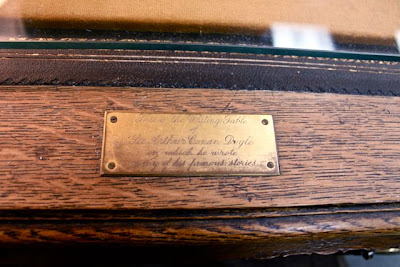 Writing Table
Sir Arthur Conan Doyle
on which he wrote
of his famous stories